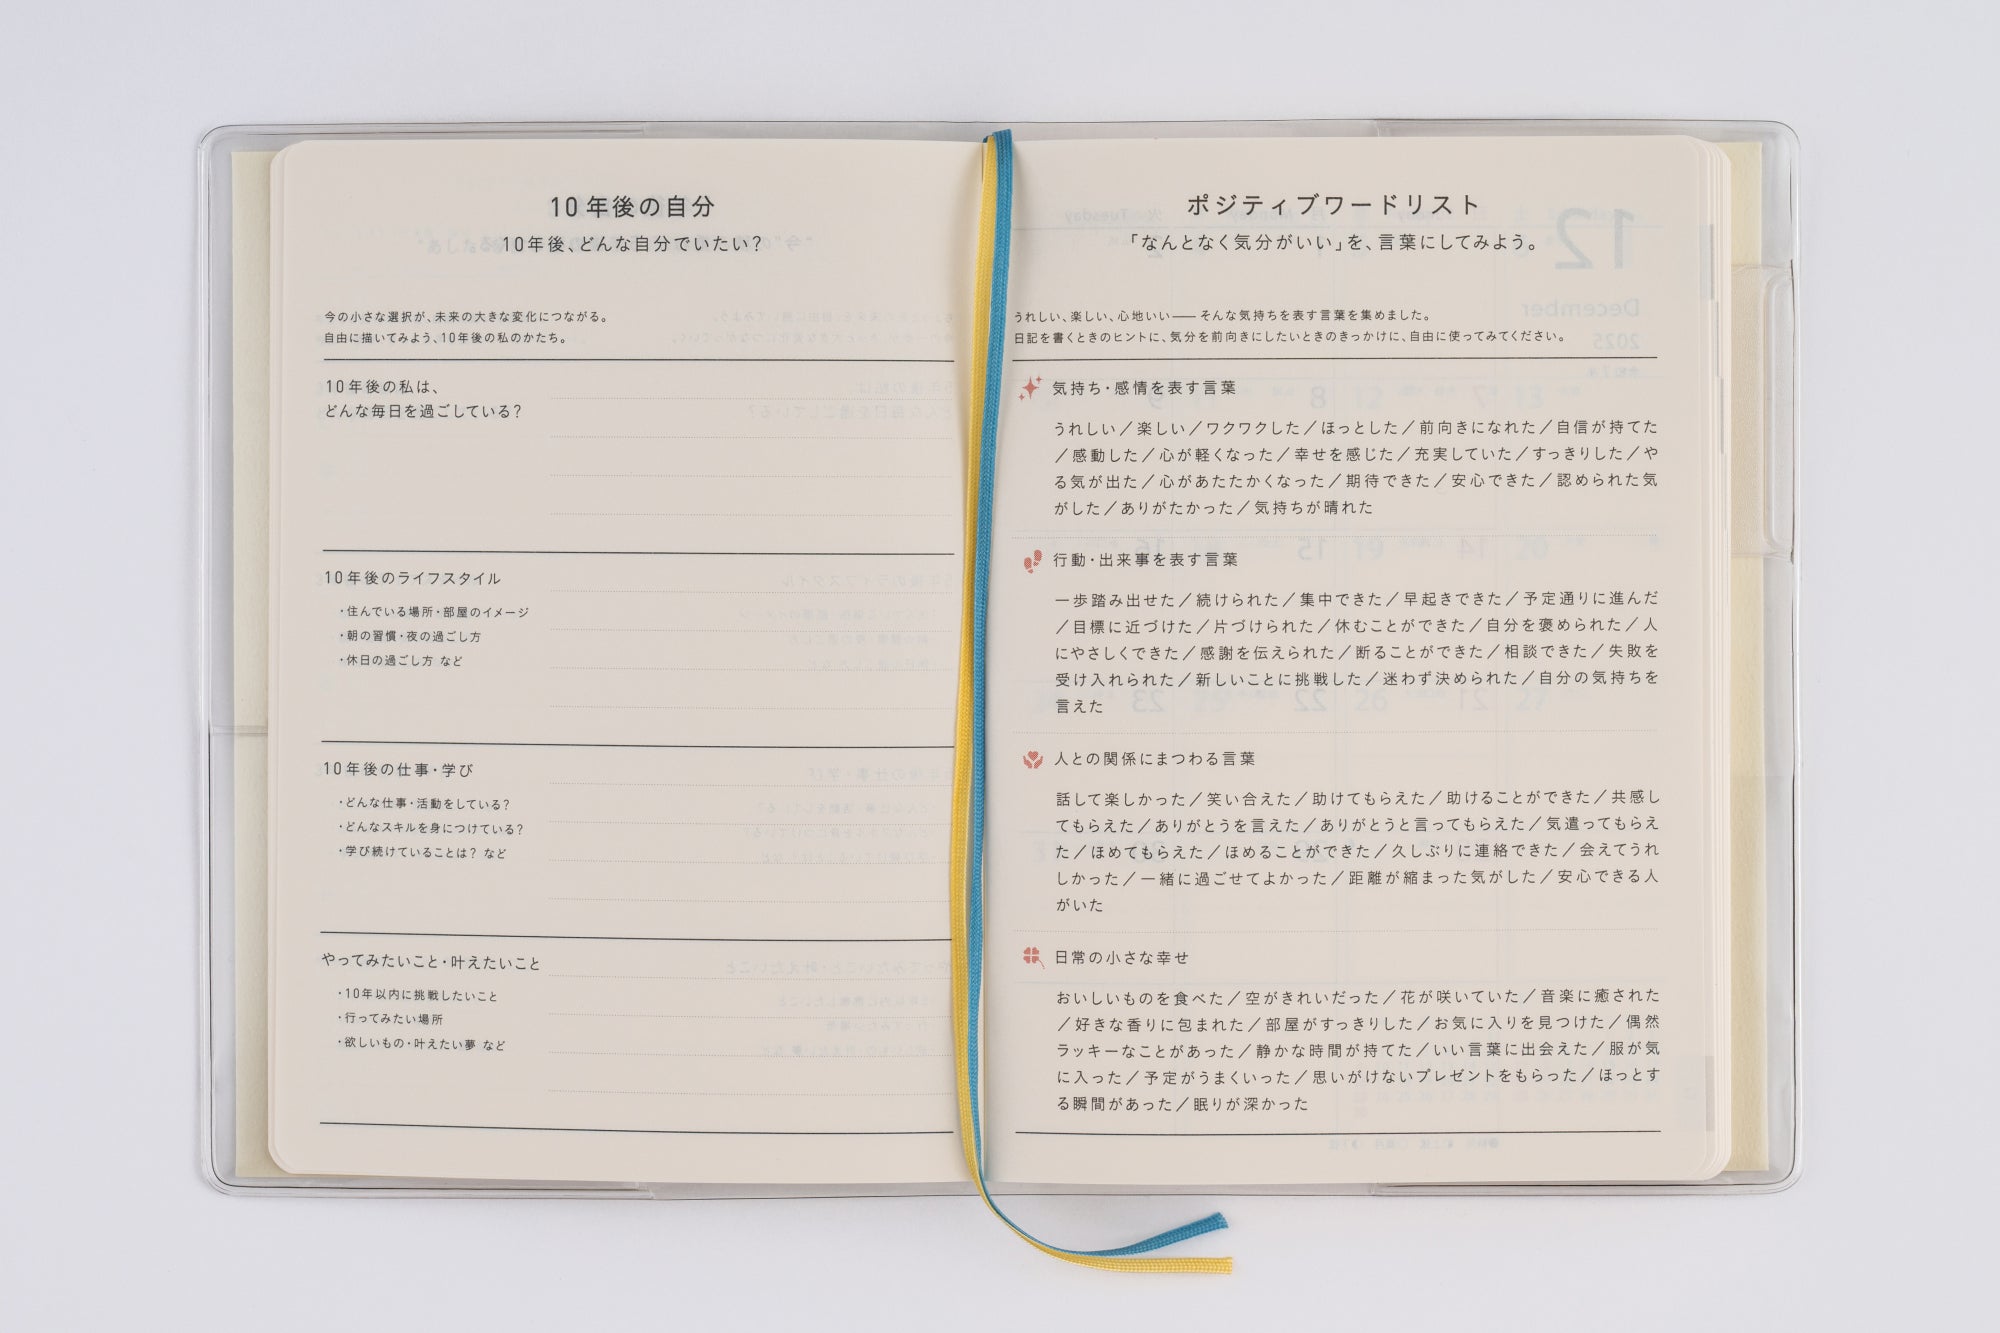 10年後の自分
10年後、どんな自分でいたい？
今の小さな選択が、未来の大きな変化につながる。
自由に描いてみよう、10年後の私のかたち。
10年後の私は、
どんな毎日を過ごしている？
10年後のライフスタイル
・住んでいる場所・部屋のイメージ
・朝の習慣・夜の過ごし方
・休日の過ごし方 など
10年後の仕事・学び
・どんな仕事・活動をしている？
・どんなスキルを身につけている？
・学び続けていることは？ など
やってみたいこと・叶えたいこと
・10年以内に挑戦したいこと
・行ってみたい場所
・欲しいもの・叶えたい夢 など
ポジティブワードリスト
「なんとなく気分がいい」を、言葉にしてみよう。
うれしい、楽しい、心地いい── そんな気持ちを表す言葉を集めました。
日記を書くときのヒントに、気分を前向きにしたいときのきっかけに、自由に使ってみてください。
気持ち・感情を表す言葉
うれしい／楽しい／ワクワクした／ほっとした／前向きになれた／自信が持てた
／感動した／心が軽くなった／幸せを感じた／充実していた／すっきりした／や
る気が出た／心があたたかくなった／期待できた／安心できた／認められた気
がした／ありがたかった／気持ちが晴れた
行動・出来事を表す言葉
一歩踏み出せた／続けられた／集中できた／早起きできた／予定通りに進んだ
／目標に近づけた／片づけられた／休むことができた／自分を褒められた／人
にやさしくできた／感謝を伝えられた／断ることができた／相談できた／失敗を
受け入れられた／新しいことに挑戦した／迷わず決められた／自分の気持ちを
言えた
人との関係にまつわる言葉
話して楽しかった／笑い合えた／助けてもらえた／助けることができた／共感し
てもらえた／ありがとうを言えた／ありがとうと言ってもらえた／気遣ってもらえ
た／ほめてもらえた／ほめることができた／久しぶりに連絡できた／会えてうれ
しかった／一緒に過ごせてよかった／距離が縮まった気がした／安心できる人
がいた
日常の小さな幸せ
おいしいものを食べた／空がきれいだった／花が咲いていた／音楽に癒された
／好きな香りに包まれた／部屋がすっきりした／お気に入りを見つけた／偶然
ラッキーなことがあった／静かな時間が持てた／いい言葉に出会えた／服が気
に入った／予定がうまくいった／思いがけないプレゼントをもらった／ほっとす
る瞬間があった／眠りが深かった